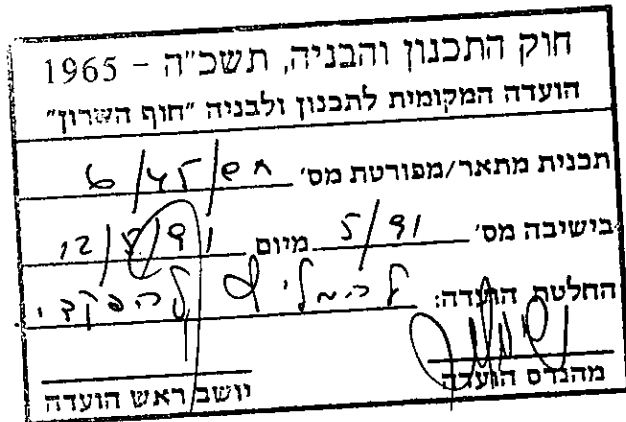 חוק התכנון והבניה, תשכ"ה - 1965
הועדה המקומית לתכנון ולבניה "חוף השרון"
תכנית מתאר/מפורטת מס' חש/45/6
בישיבה מס' 5/91 מיום 12/5/91
החלטת הועדה: להמליץ להפקיד
מהנדס הועדה יושב ראש הועדה